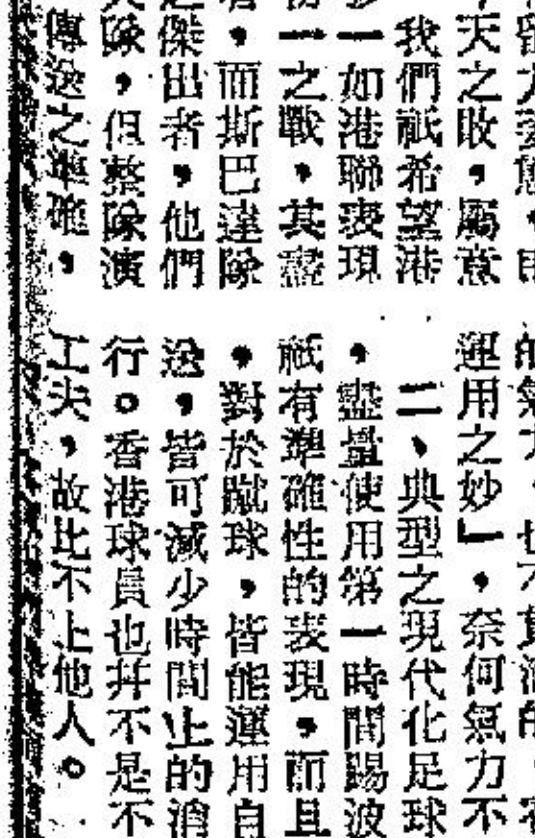 天之敗，屬意
我們祇希望港
一如港聯表現
一之戰，其盡
，而斯巴達隊
傑出者，他們
隊，但整隊演
傳送之準確，
運用之妙」，奈何氣力不
二、典型之現代化足球
，盡量使用第一時間踢波
祇有準確性的表現，而且
，對於蹴球，皆能運用自
送，皆可減少時間上的消
行。香港球員也幷不是不
工夫，故比不上他人。